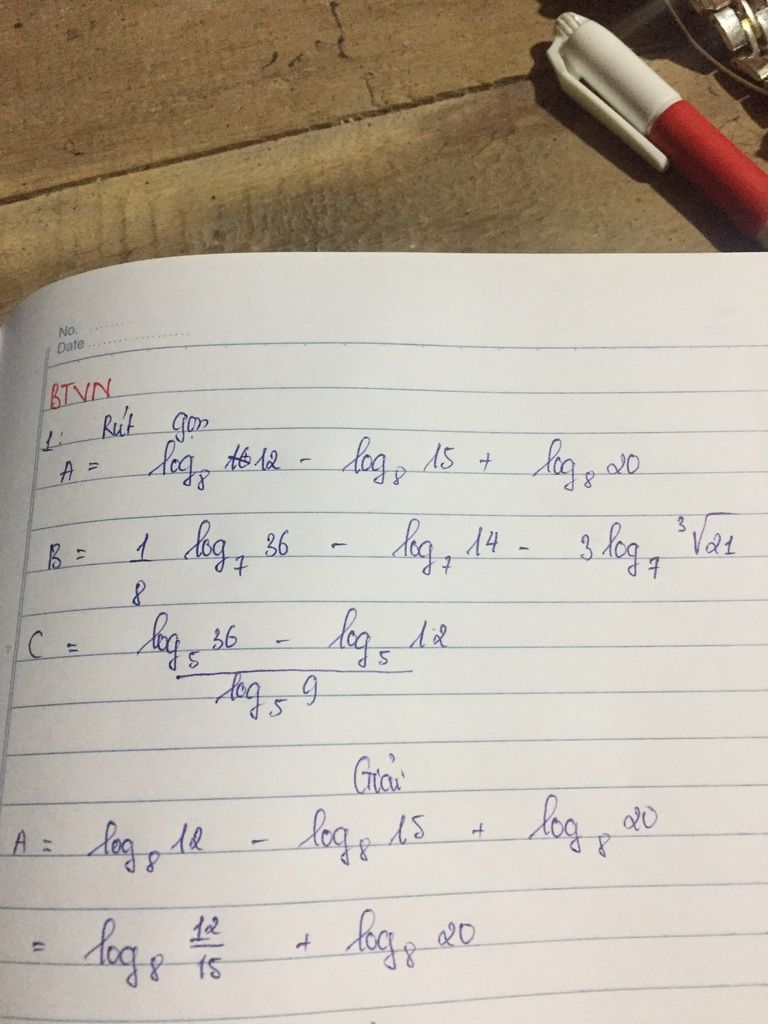 No. ........
Date ........ ................
BTVN
1: Rút gọn
A = log₈ 12 - log₈ 15 + log₈ 20
B = 1/8 log₇ 36 - log₇ 14 - 3 log₇ ³√21
C = log₅ 36 - log₅ 12
log₅ 9
Giải
A = log₈ 12 - log₈ 15 + log₈ 20
= log₈ 12/15 + log₈ 20